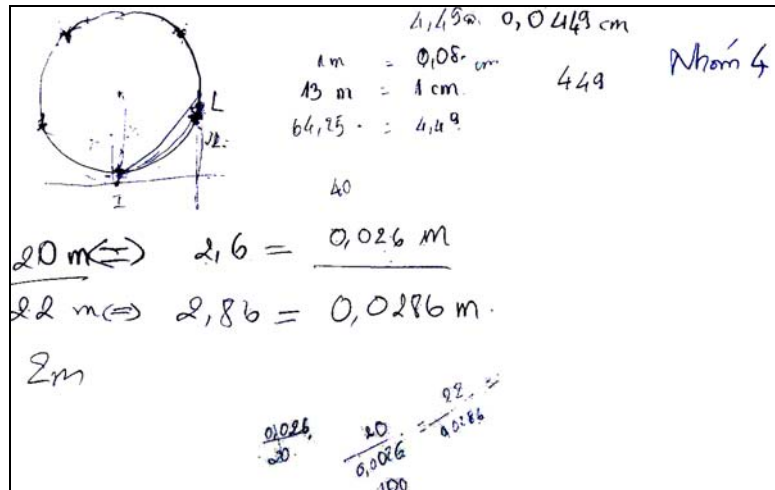 4,49 0,0449 cm
Nhóm 4
1 m = 0,08 cm
449
13 m = 1 cm
64,25 = 4,49
L
I
40
20 m <=> 2,6 = 0,026 m
22 m <=> 2,86 = 0,0286 m.
2m
0,026 / 20
20 / 0,0026 = 22 / 0,0286 =
100